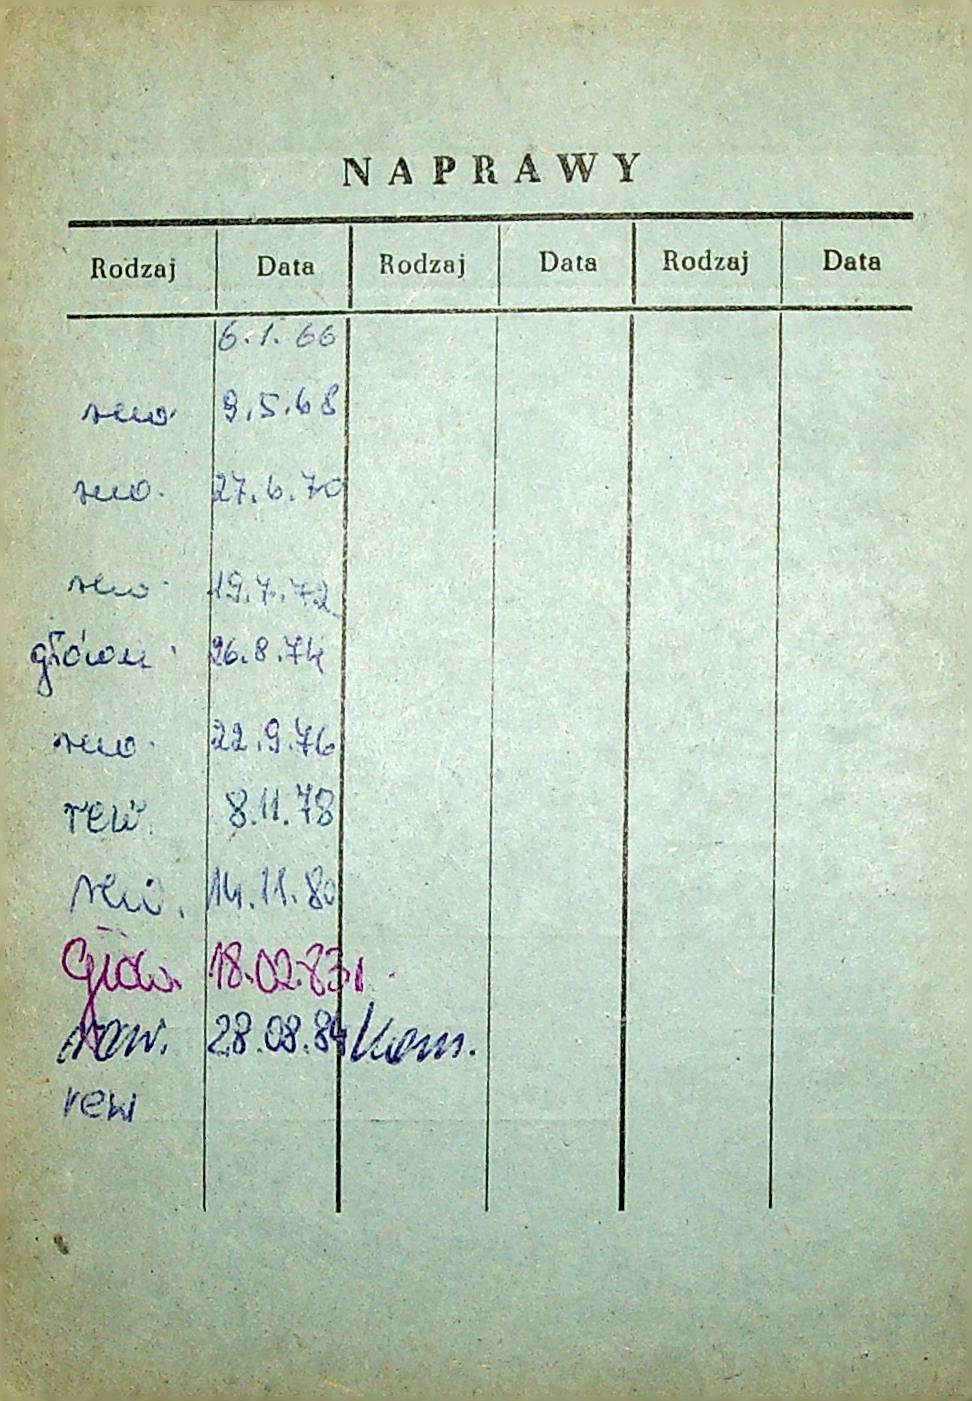 NAPRAWY
Rodzaj Data Rodzaj Data Rodzaj Data
6.1.66
rew. 9.5.68
rew. 27.6.70
rew. 19.7.72
główn. 26.8.74
rew. 22.9.76
rew. 8.11.78
rew. 14.11.80
Głów. 18.02.83r.
rew. 28.08.84 Kom.
rew